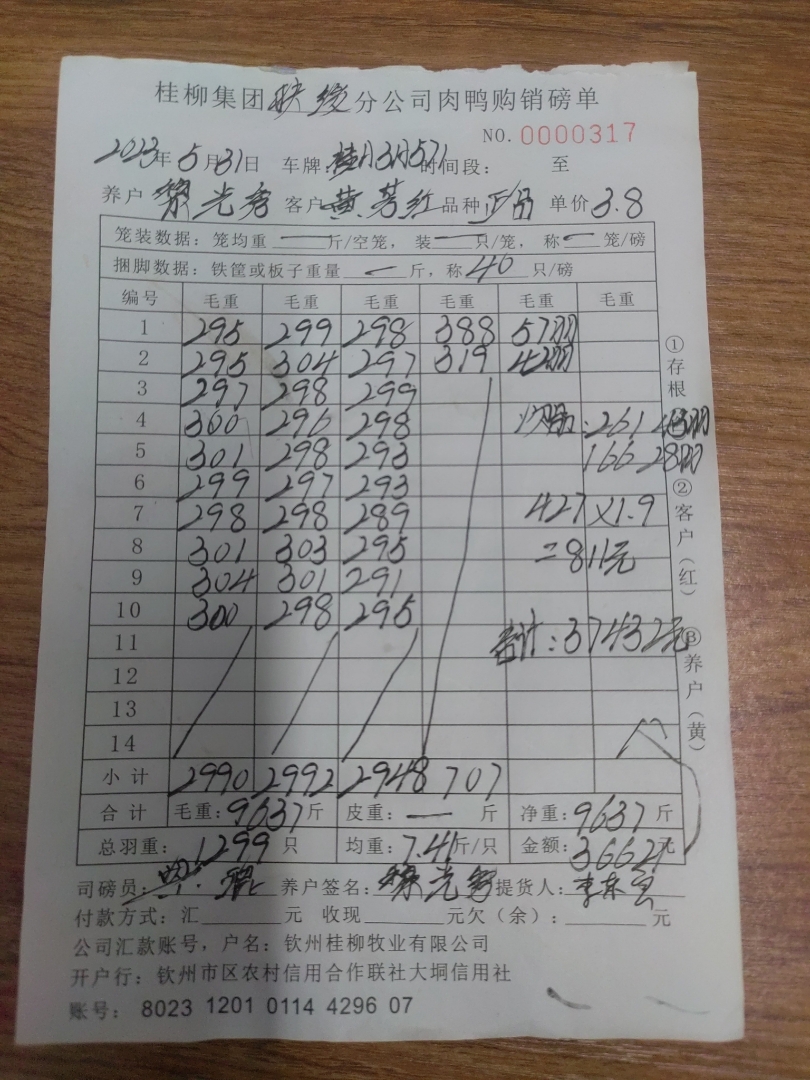 桂柳集团 分公司肉鸭购销磅单
NO. 0000317
2023年5月31日 车牌: 时间段: 至
养户 黎光秀 客户 黄芳红 品种 正品 单价 3.8
笼装数据: 笼均重 — 斤/空笼, 装 — 只/笼, 称 — 笼/磅
捆脚数据: 铁筐或板子重量 — 斤, 称 40 只/磅
编号 毛重 毛重 毛重 毛重 毛重 毛重
1 295 299 298 388 57羽
2 295 304 297 319 42羽
3 297 298 299
4 300 296 298 : 261
5 301 298 293 166 28羽
6 299 297 293
7 298 298 289 427×1.9
8 301 303 295 =811元
9 304 301 291
10 300 298 295
11 合计: 37432元
12
13
14
小计 2990 2992 2948 707
合计 毛重: 9637斤 皮重: — 斤 净重: 9637斤
总羽重: 1299只 均重: 7.41斤/只 金额: 36621元
司磅员: 养户签名: 黎光秀 提货人:
付款方式: 汇 元 收现 元欠(余): 元
公司汇款账号, 户名: 钦州桂柳牧业有限公司
开户行: 钦州市区农村信用合作联社大垌信用社
账号: 8023 1201 0114 4296 07
①存根
②客户(红)
③养户(黄)